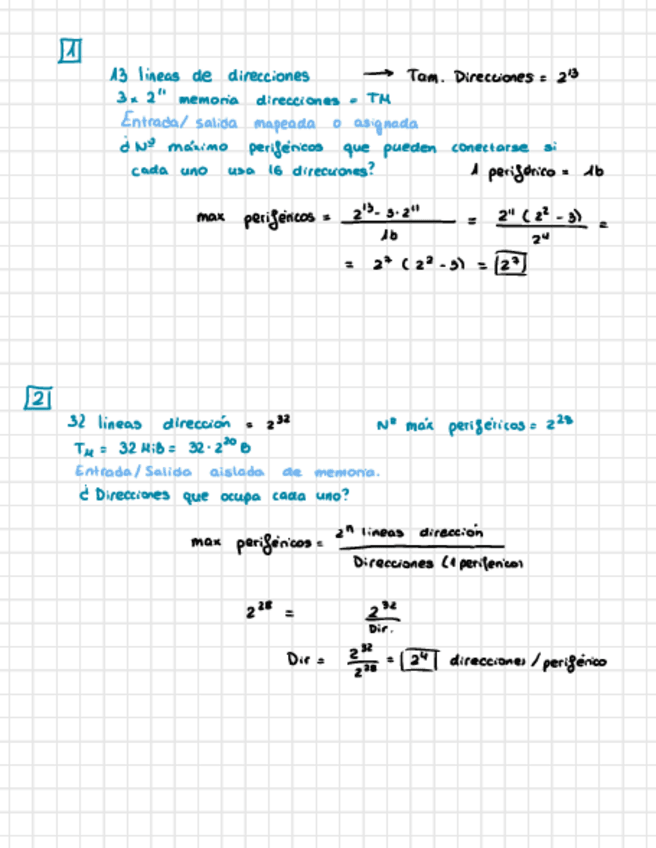 1
13 lineas de direcciones → Tam. Direcciones = 2¹³
3 x 2¹¹ memoria direcciones = TM
Entrada/ salida mapeada o asignada
¿ Nº máximo periféricos que pueden conectarse si
cada uno usa 16 direcciones? 1 periférico = 16
max periféricos = (2¹³ - 3 · 2¹¹) / 16 = 2¹¹ (2² - 3) / 2⁴ =
= 2⁷ (2² - 3) = 2⁷
2
32 lineas dirección = 2³² Nº máx periféricos = 2²⁸
T_M = 32 MiB = 32 · 2²⁰ B
Entrada/Salida aislada de memoria.
¿ Direcciones que ocupa cada uno?
max periféricos = 2ⁿ lineas dirección / Direcciones (1 periferico)
2²⁸ = 2³² / Dir.
Dir = 2³² / 2²⁸ = 2⁴ direcciones / periférico